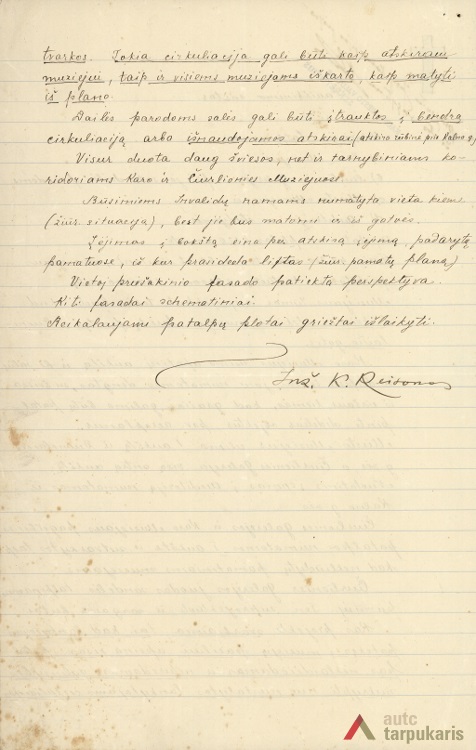 tvarkos. Tokia cirkuliacija gali būti kaip atskiram
muziejui, taip ir visiems muziejams iškarto, kaip matyti
iš plano.
Dailės parodoms salės gali būti įtrauktos į bendrą
cirkuliaciją arbo išnaudojamos atskirai (atskira rūbinė prie
Visur duota daug šviesos, net ir tarnybiniams ko-
ridoriams Karo ir Čiurlionies Muziejuose.
Busimiems Invalidų namams numatyta vieta kieme
(žiūr. situaciją), bet jie bus matomi ir iš gatvės.
Įėjimas į bokštą eina per atskirą įėjimą, padarytą
pamatuose, iš kur prasideda liftas (žiūr. pamatų planą)
Vietoj priešakinio fasado patiekta perspektyva.
Kiti fasadai schematiniai.
Reikalaujami patalpų plotai griežtai išlaikyti.
Inž. K. Reisonas
autc
tarpukaris